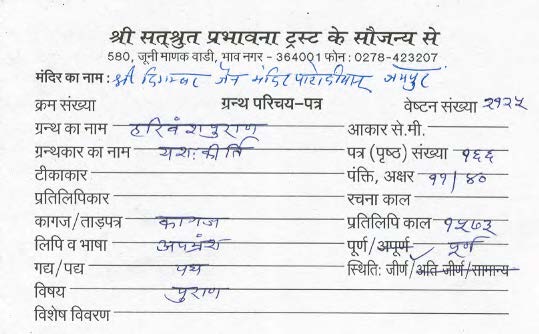 श्री सत्श्रुत प्रभावना ट्रस्ट के सौजन्य से
580, जूनी माणक वाडी, भाव नगर - 364001 फोन : 0278-423207
मंदिर का नाम : श्री दिगम्बर जैन मंदिर पाटोदीयान् जयपुर
क्रम संख्या ग्रन्थ परिचय-पत्र वेष्टन संख्या २१२५
ग्रन्थ का नाम हरिवंशपुराण आकार से.मी.
ग्रन्थकार का नाम यशःकीर्ति पत्र (पृष्ठ) संख्या १६६
टीकाकार पंक्ति, अक्षर ११/४०
प्रतिलिपिकार रचना काल
कागज/ताड़पत्र कागज प्रतिलिपि काल १५७३
लिपि व भाषा अपभ्रंश पूर्ण/अपूर्ण पूर्ण
गद्य/पद्य पद्य स्थिति: जीर्ण/अति जीर्ण/सामान्य
विषय पुराण
विशेष विवरण